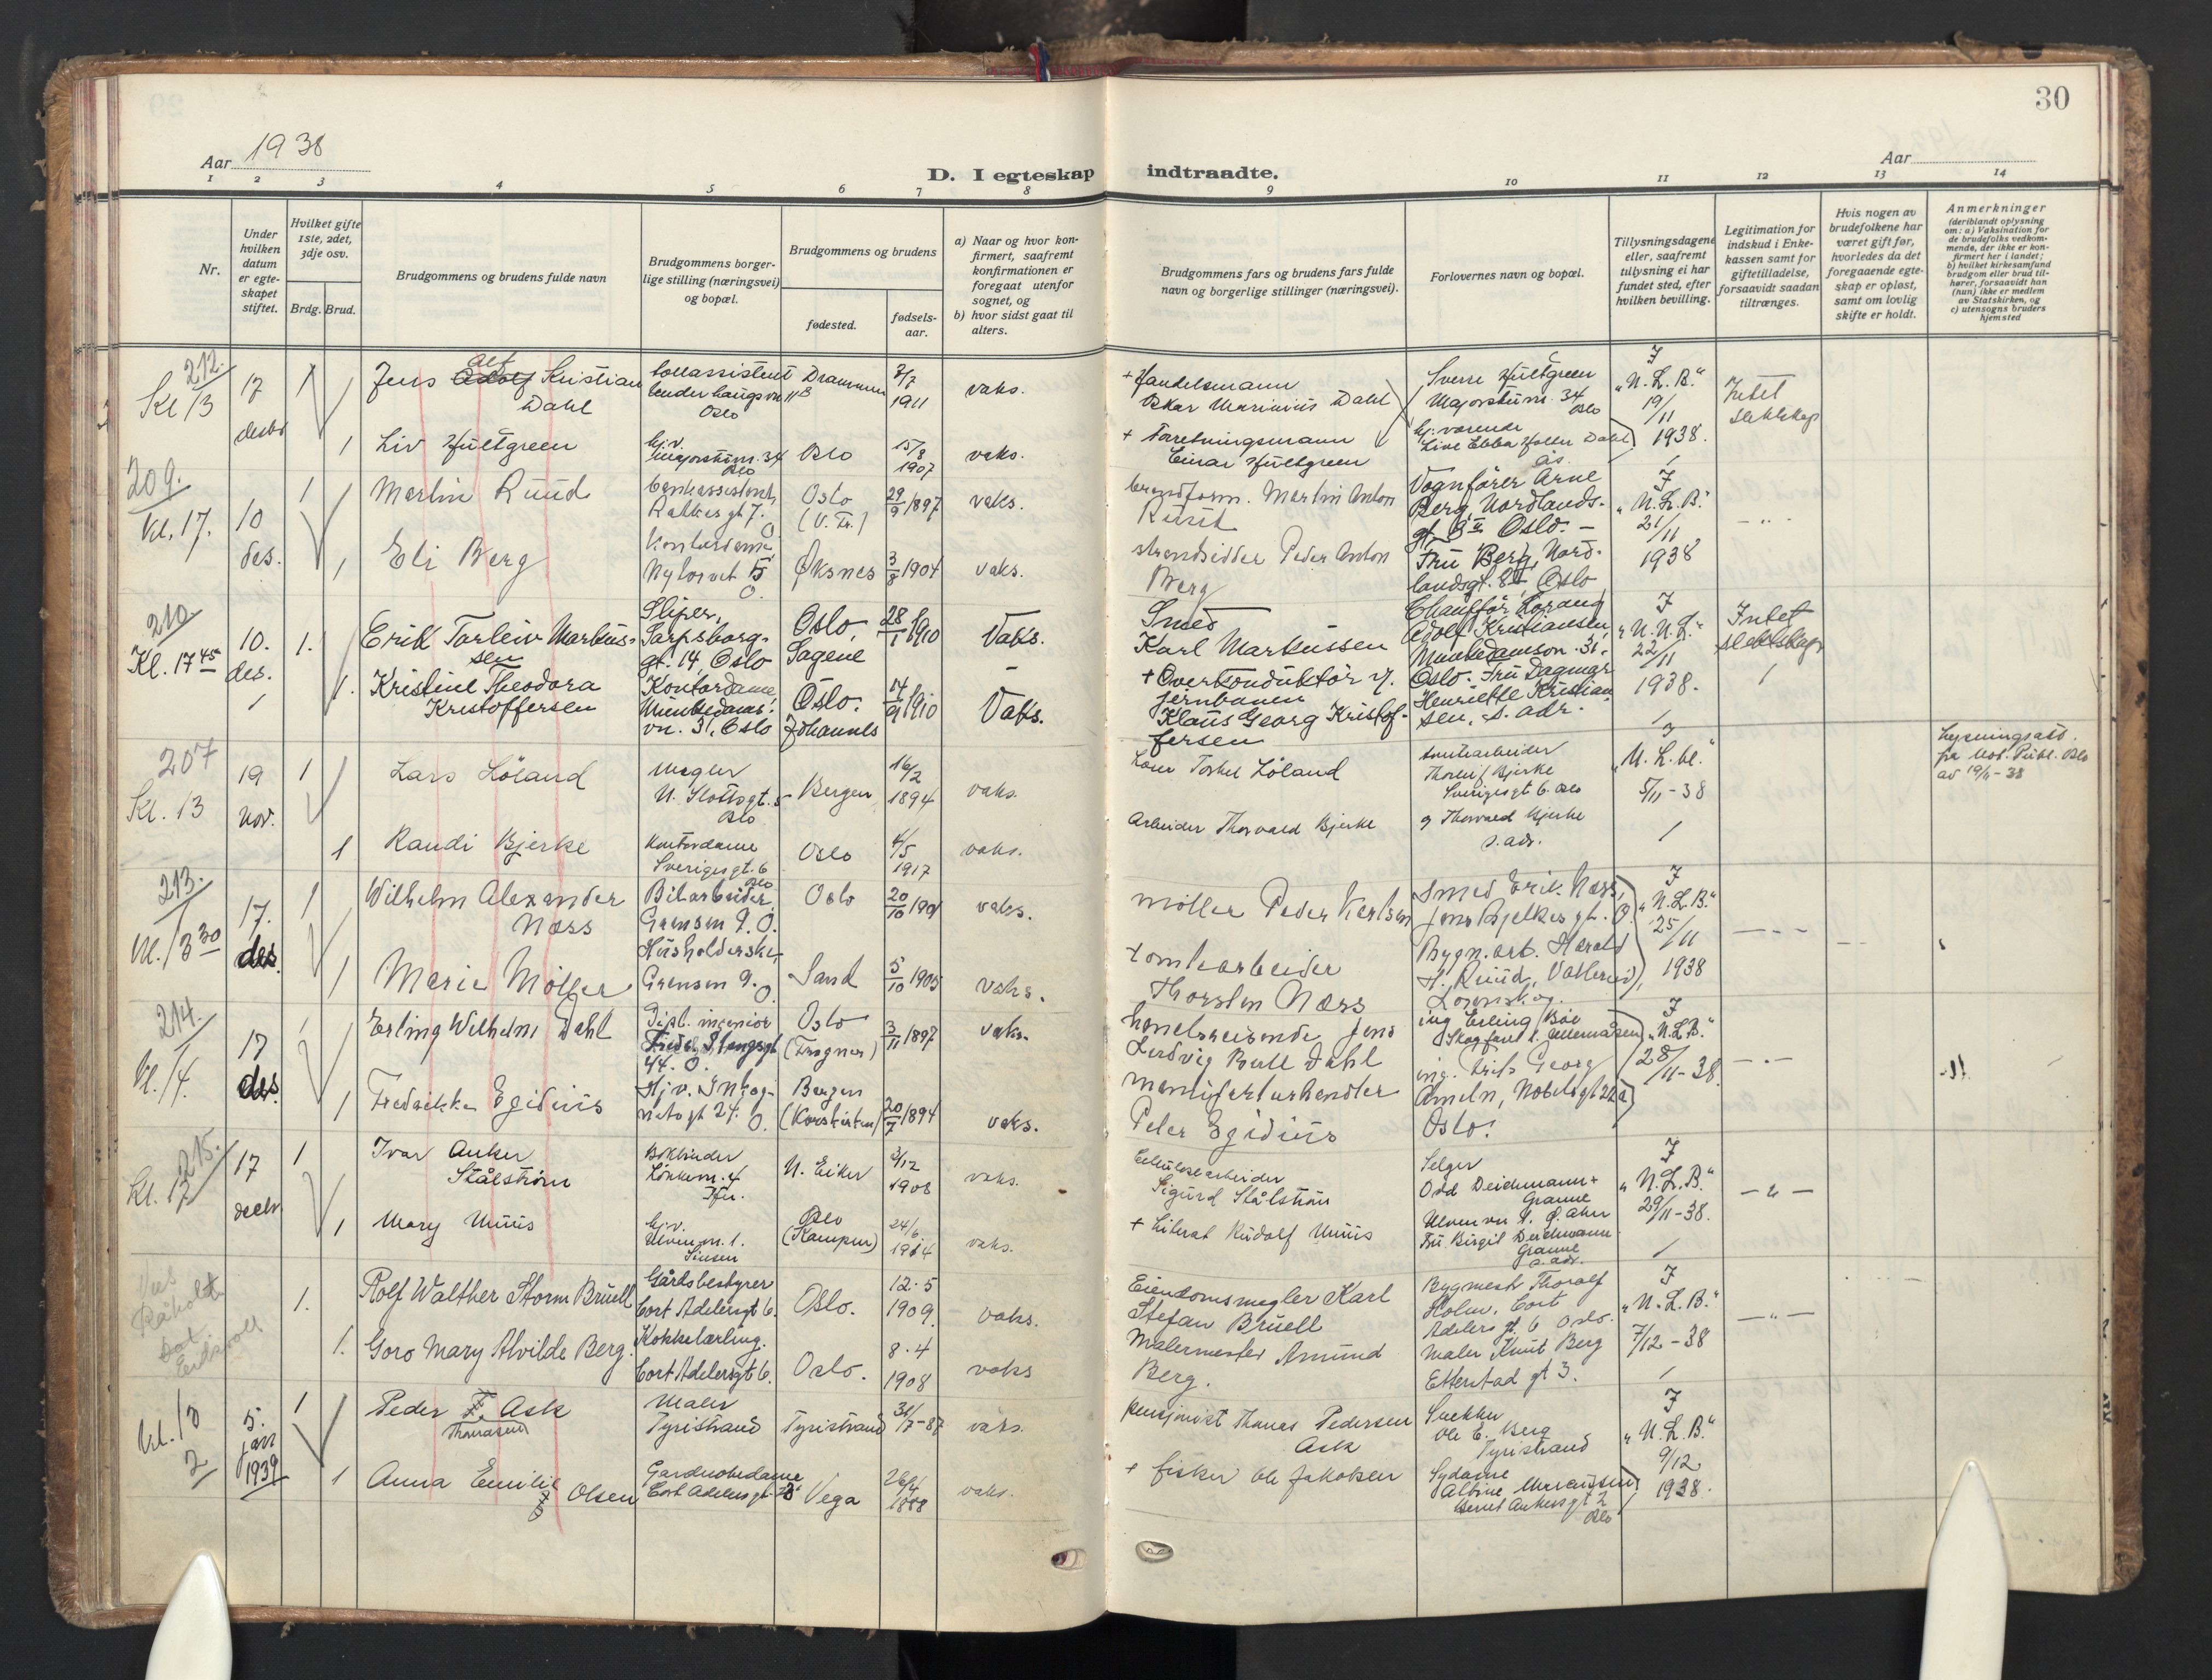 30
Aar 1938
Aar
D. I egteskap indtraadte.
1 2 3 4 5 6 7 8 9 10 11 12 13 14
Nr.
Under hvilken datum er egteskapet stiftet.
Hvilket gifte 1ste, 2det, 3dje osv.
Brdg. Brud.
Brudgommens og brudens fulde navn
Brudgommens borgerlige stilling (næringsvei) og bopæl.
Brudgommens og brudens
fødested.
fødselsaar.
a) Naar og hvor konfirmert, saafremt konfirmationen er foregaat utenfor sognet, og
b) hvor sidst gaat til alters.
Brudgommens fars og brudens fars fulde navn og borgerlige stillinger (næringsvei).
Forlovernes navn og bopæl.
Tillysningsdagene eller, saafremt tillysning ei har fundet sted, efter hvilken bevilling.
Legitimation for indskud i Enkekassen samt for giftetilladelse, forsaavidt saadan tiltrænges.
Hvis nogen av brudefolkene har været gift før, hvorledes da det foregaaende egteskap er opløst, samt om lovlig skifte er holdt.
Anmerkninger
(deriblandt oplysning om: a) Vaksination for de brudefolks vedkommende, der ikke er konfirmert her i landet; b) hvilket kirkesamfund brudgom eller brud tilhører, forsaavidt han (hun) ikke er medlem av Statskirken, og c) utensogns bruders hjemsted
212. Kl 13
17 desbr
1
Jens Adolf Alf Kristian Dahl
Oslo
Drammen
2/7 1911
vaks.
+ Handelsmann Oskar Marinius Dahl
Sverre Hultgreen Majorstuvn. 34 Oslo
I "N. L. B." 19/11 1938.
Intet slektskap
1
Liv Hultgreen
hjv. Majorstuvn. 34 Oslo
Oslo
15/8 1907
vaks.
+ Forretningsmann Einar Hultgreen
hj. værende Live Ebba Holter Dahl Ås.
209. Kl. 17.
10 des.
1
Martin Ruud
Oslo
29/9 1897
vaks.
Martin Anton Ruud
Vognfører Arne Berg, Nordlandsgt. 8 II Oslo. -
I "N. L. B." 21/11 1938
- " -
1
Eli Berg
Kontordame Nytorvet 5 O.
Øksnes
3/8 1904
vaks.
strandsidder Peder Anton Berg
Fru Berg, Nordlandsgt. 8 II Oslo
210 Kl. 17 45
10. des.
1.
Erik Torleiv Markussen
Sliper, Sarpsborggt. 14, Oslo
Oslo, Sagene
28/1 1910
Vaks.
Smed Karl Markussen
Chauffør Adolf Kristiansen, Munkedamsvn. 31, Oslo.
I "N. L." 22/11 1938.
Intet slektskap
1.
Kristine Theodora Kristoffersen
Kontordame Munkedamsvn. 31, Oslo
Oslo. Johannes
14/9 1910
Vaks.
+ Overkonduktør v. jernbanen Klaus Georg Kristoffersen
Fru Dagmar Henriette Kristiansen, s. adr.
207 Kl. 13
19 nov.
1
Lars Löland
Megler N. Slottsgt. 5 Oslo
Bergen
16/2 1894
vaks.
Torkel Löland
Thorleif Bjerke Sverigesgt 6. Oslo
5/11-38
Lysningsatt. fra Oslo av 19/11-38
1
Randi Bjerke
Kontordame Sverigesgt. 6 Oslo
Oslo
4/5 1917
vaks.
Arbeider Thorvald Bjerke
og Thorvald Bjerke s. adr.
213. Kl. 13 30
17. des
1
Wilhelm Alexander Næss
Bilarbeider, Grensen 9. O.
Oslo
20/10 1901
vaks.
Møller Peder Karlsen
Smed Erik Næss, Jens Bjelkes gt. O.
I "N.L.B." 25/11 1938
1
Marie Møller
Husholderske Grensen 9. O.
Sand
5/10 1905
vaks.
+ tomtearbeider Thorsten Næss
Bygn.arb. Harald H. Ruud, Lørenskog.
214. Kl. 14.
17 des
1
Erling Wilhelm Dahl
Dipl. ingeniør Fredr. Stangsgt 44. O.
Oslo (Frogner)
3/11 1897
vaks.
handelsreisende Jens Ludvig Bull Dahl
ing Erling Bøe
I "N.L.B." 28/11-38
1
Fredrikke Egidius
Hjv. Inkognitogt 24. O.
Bergen (Korskirken)
20/7 1894
vaks.
manufakturhandler Peter Egidius
ing. Fritz Georg Ameln, Nobelsgt 22a Oslo.
215. Kl. 17
17 decbr
1
Ivar Anker Stålström
Bokbinder
N. Eiker
3/12 1908
vaks.
Cellulosearbeider Sigurd Stålström
Selger Odd Deichmann-Granne Ulvenvn 1. Ø. Aker
I "N. L. B." 29/11-38.
1
Mary Muus
hjv. Ulvenvn. 1. Sinsen
Oslo (Kampen)
24/6 1914
vaks.
+ Literat Rudolf Muus
Fru Birgit Deichmann Granne s. adr.
Ved Råholt Eidsvoll
1.
Rolf Walther Storm Bruell
Gårdsbestyrer Cort Adelersgt 6.
Oslo.
12.5 1909.
vaks.
Eiendomsmegler Karl Stefan Bruell
Bygmestr Thoralf Holm, Cort Adelers gt. 6 Oslo.
I "N. L. B." 7/12-38
1.
Goro Mary Alvilde Berg.
Kokkelærling. Cort Adelersgt 6.
Oslo.
8.4 1908
vaks
Malermester Amund Berg.
Maler Knut Berg Etterstad gt 3.
Kl. 13 2
5. jan 1939
1
Peder T. Ask Thomassen
Maler Tyristrand
Tyristrand
31/7-87
vaks.
pensjonist Thomas Pedersen Ask
Snekker Ole E. Berg Tyristrand
I "N. L. B." 9/12 1938.
1
Anna Emilie J. Olsen
Garderobedame Cort Adelersgt.
Vega
26/4 1888
vaks.
+ fisker Ole Jakobsen
Sydame Albine Bernt Ankersgt 2 Oslo